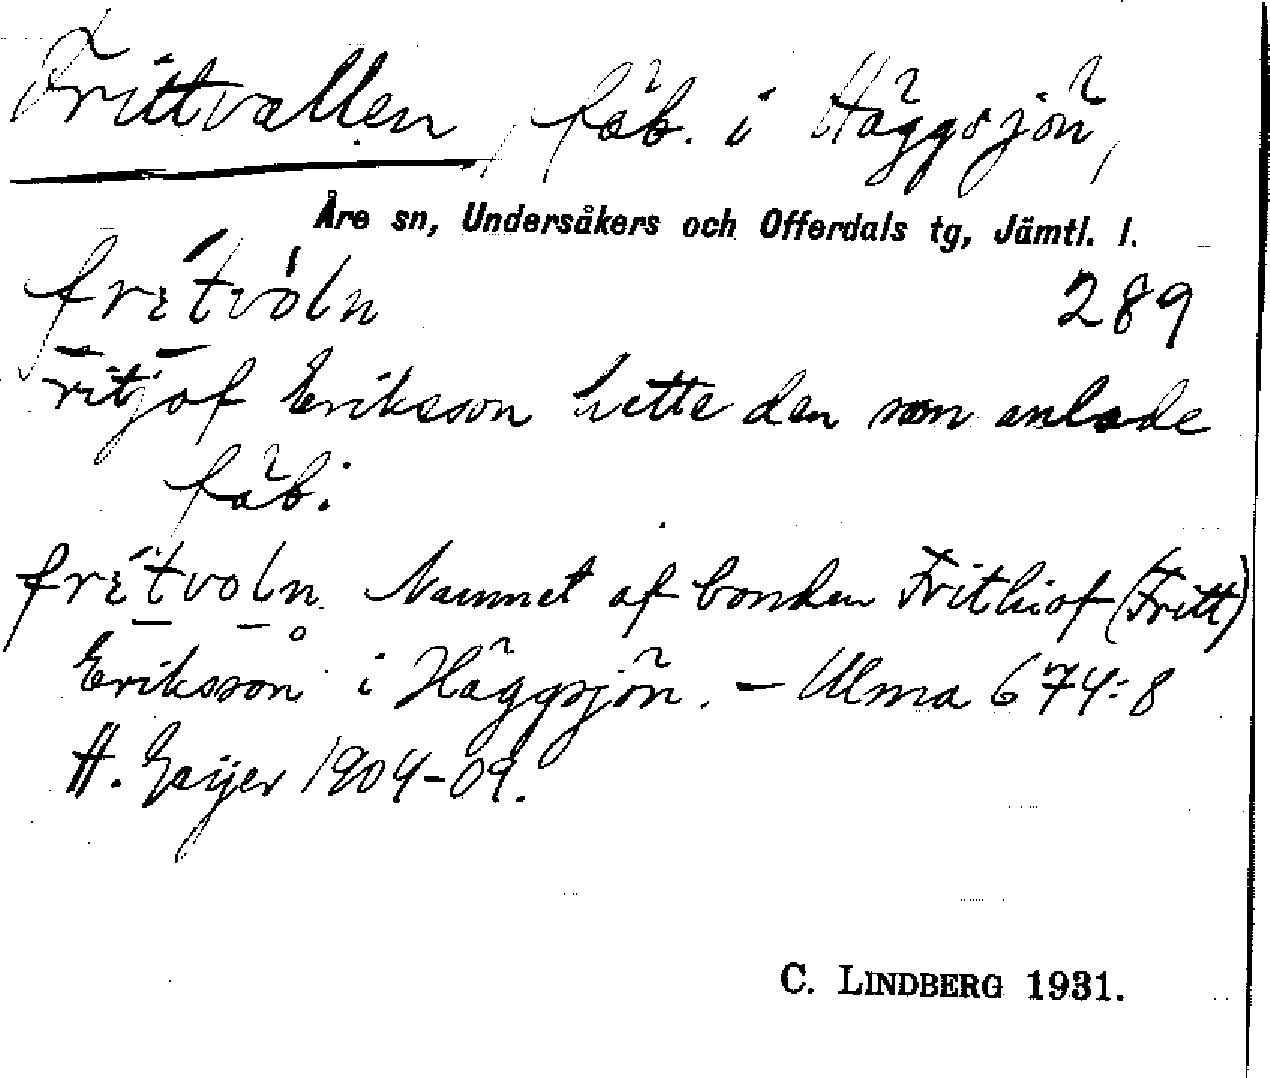 Frittvallen, fäb. i Häggsjön,
Åre sn, Undersåkers och Offerdals tg, Jämtl. l.
frɩ́tvóln
289
ritjof Erikson hette den som anlade
fäb.
frɩtvoln. Namnet af bonden Frithiof (Fritt)
Eriksson i Häggsjön. – Ulma 674:8
H. Geijer 1904-09.
C. LINDBERG 1931.